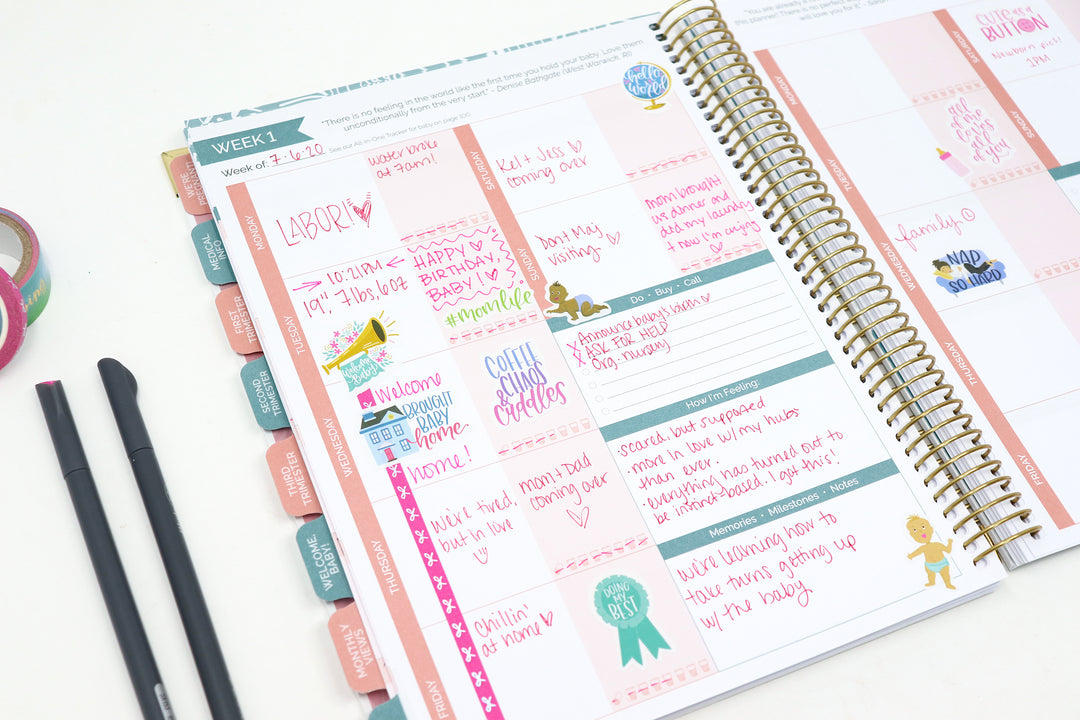 "There is no feeling in the world like the first time you hold your baby. Love them
unconditionally from the very start." - Denise Bathgate (West Warwick, RI)
WEEK 1
See our All-In-One Tracker for baby on page 100
Week of: 7.6.20
hello
world
MONDAY
LABOR!
water broke
at 7am!
TUESDAY
10:21PM
19", 7lbs, 6oz
HAPPY
BIRTHDAY,
BABY!
#momlife
Welcome
Baby!
WEDNESDAY
Welcome
BROUGHT
BABY
home
home!
COFFEE
& CHAOS
& Cuddles
THURSDAY
We're tired,
but in love
mom + Dad
coming over
FRIDAY
Chillin'
at home
DOING
MY
BEST
SATURDAY
Kel + Jess
coming over
SUNDAY
Don + May
visiting
mom brought
us dinner and
did my laundry
+ now I'm crying
Do • Buy • Call
Announce baby's birth
ASK FOR HELP
Org. nursery
How I'm Feeling:
• scared, but supported
• more in love w/ my hubs
than ever.
• everything has turned out to
be instinct-based. I got this!
Memories • Milestones • Notes
we're learning how to
take turns getting up
w/ the baby
WE'RE
PREGNANT!
MEDICAL
INFO
FIRST
TRIMESTER
SECOND
TRIMESTER
THIRD
TRIMESTER
WELCOME,
BABY!
MONTHLY
VIEWS
MONDAY
TUESDAY
WEDNESDAY
family
NAP
SO HARD
THURSDAY
FRIDAY
SATURDAY
CUTE as a
BUTTON
Newborn pics!
1PM
all of
me
loves
all
of you